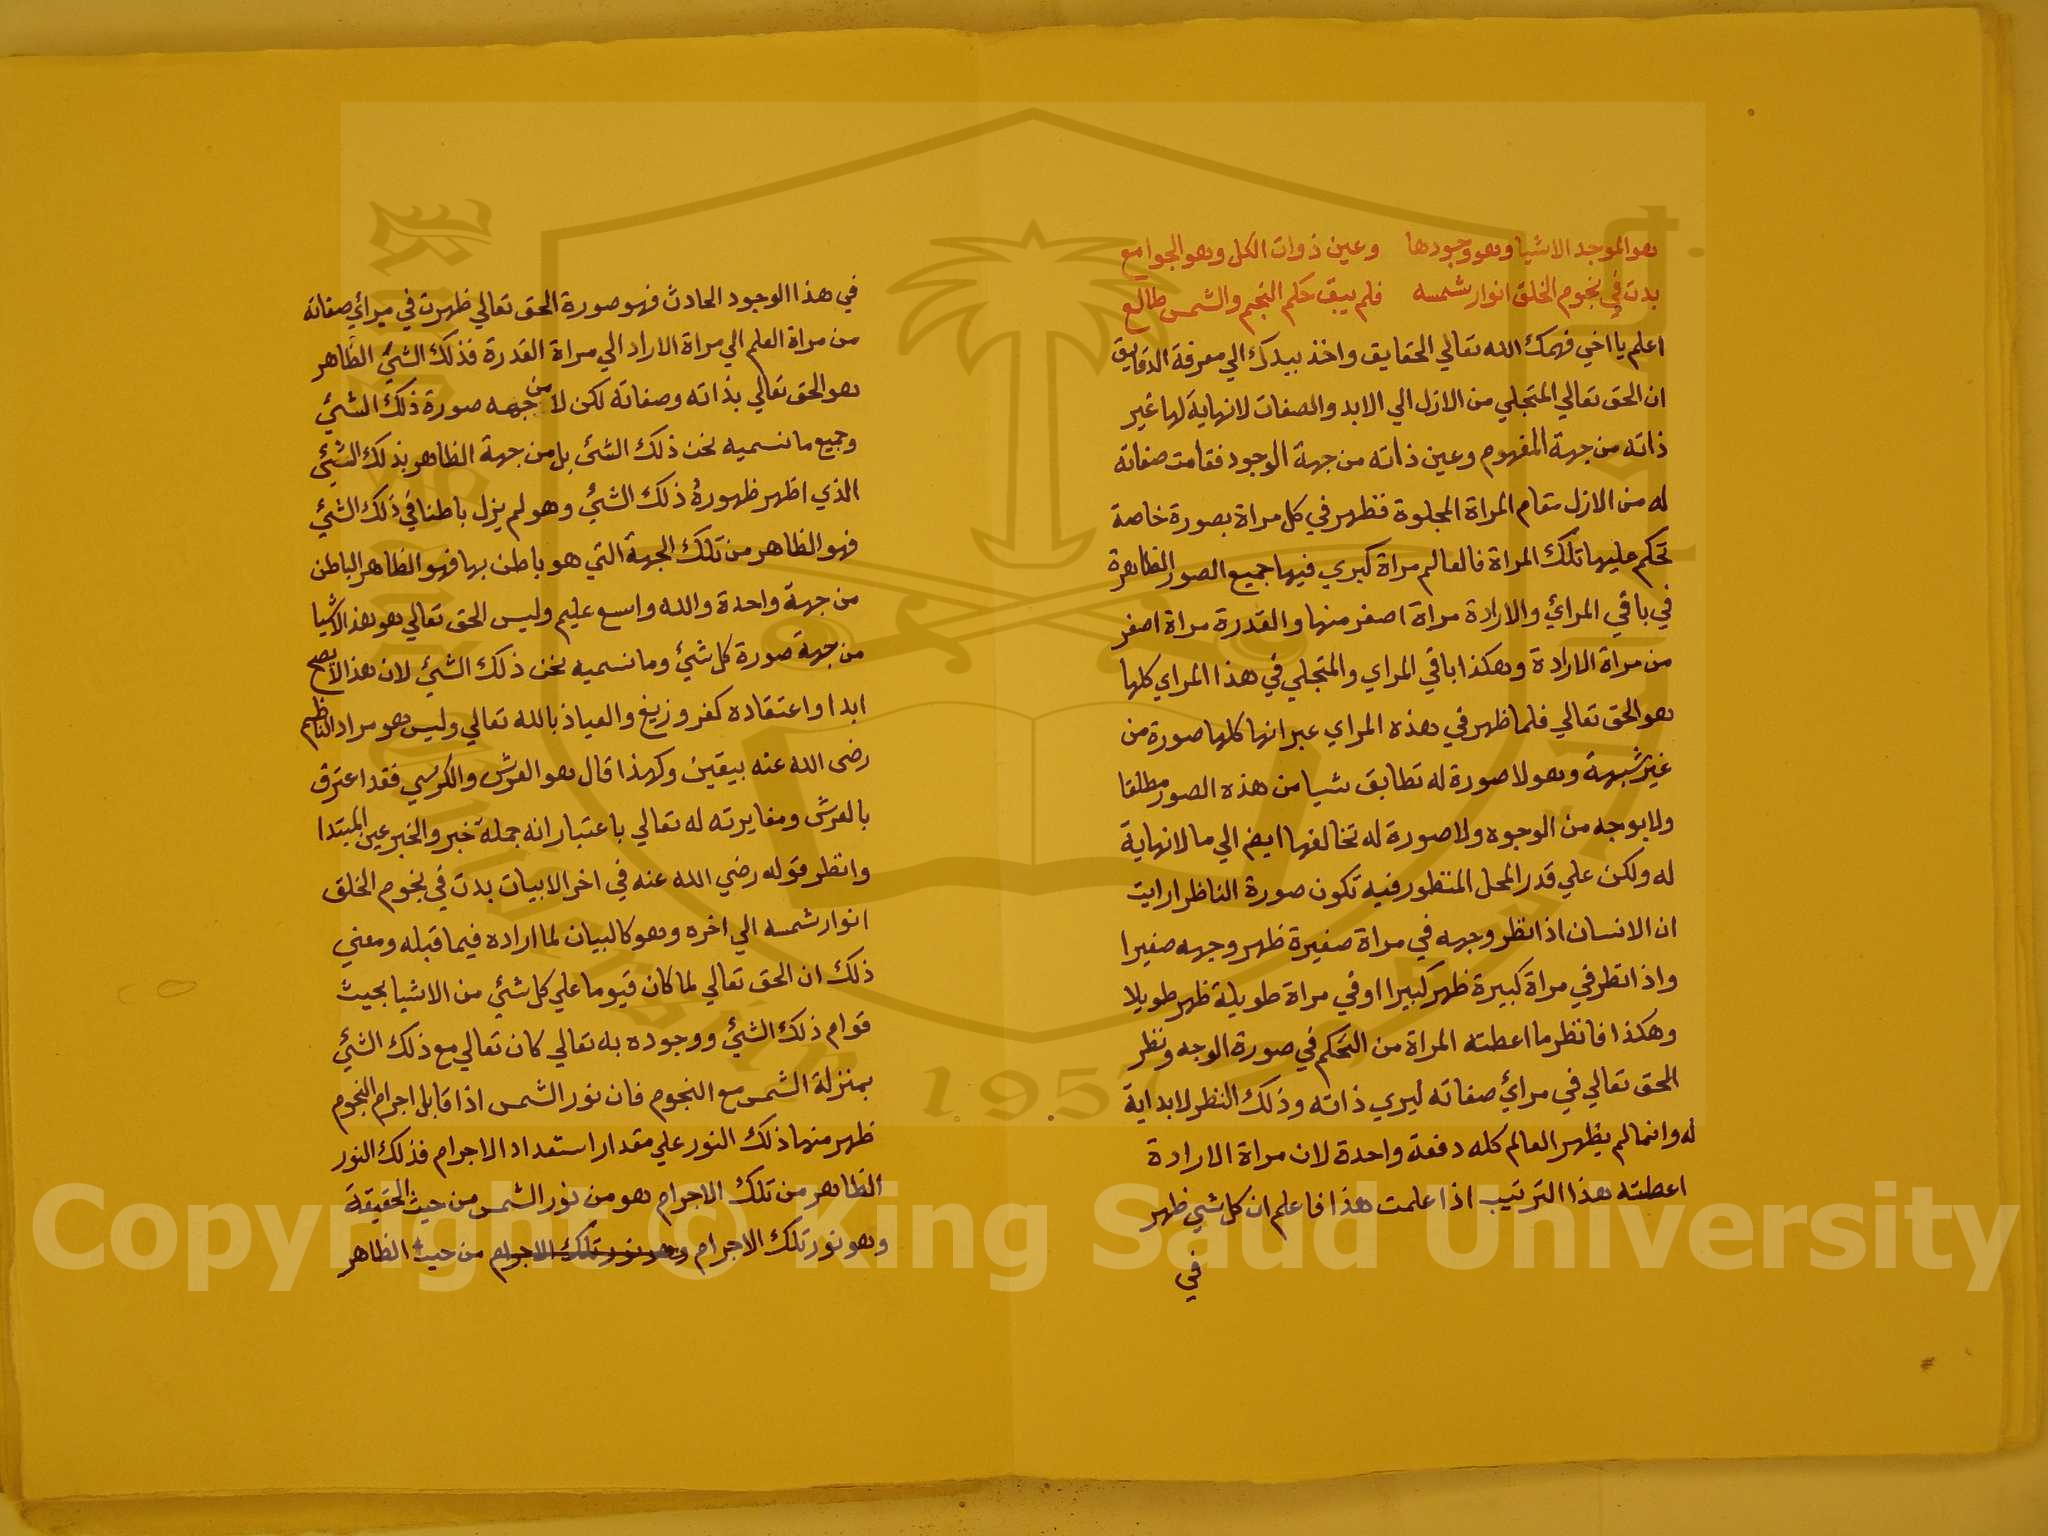 هو الموجد الاشيا وهو وجودها وعين ذوات الكل وهو الجوامع
بدت في نجوم الخلق انوار شمسه فلم يبق حكم النجم والشمس طالع
اعلم يا اخي فهمك الله تعالي الحقايق واخذ بيدك الي معرفة الدقايق
ان الحق تعالي المتجلي من الازل الي الابد والصفات لانهاية لها غير
ذاته من جهة المفهوم وعين ذاته من جهة الوجود فقامت صفاته
له من الازل مقام المراة المجلوة فظهر في كل مراة بصورة خاصة
تحكم عليها تلك المراة فالعالم مراة كبري فيها جميع الصور الظاهرة
في باقي المرائي والارادة مراة اصغر منها والقدرة مراة اصغر
من مراة الارادة وهكذا باقي المراي والمتجلي في هذا المراي كلها
هو الحق تعالي فلما ظهر في هذه المراي عبر انها كلها صورة من
غير شبهة وهو لا صورة له تطابق شيا من هذه الصور مطلقا
ولا بوجه من الوجوه ولا صورة له تخالفها ايضا الي ما لانهاية
له ولكن علي قدر المحل المنظور فيه تكون صورة الناظر ارايت
ان الانسان اذا نظر وجهه في مراة صغيرة ظهر وجهه صغيرا
واذا نظر في مراة كبيرة ظهر كبيرا او في مراة طويلة ظهر طويلا
وهكذا فانظر ما اعطته المراة من التحكم في صورة الوجه ونظر
الحق تعالي في مرائي صفاته ليري ذاته وذلك النظر لا بداية
له وانما لم يظهر العالم كله دفعة واحدة لان مراة الارادة
اعطته هذا الترتيب اذا علمت هذا فاعلم ان كل شي ظهر
في
في هذا الوجود الحادث فهو صورة الحق تعالي ظهرت في مرائي صفاته
من مراة العلم الي مراة الاراد الي مراة القدرة فذلك الشئ الظاهر
هو الحق تعالي بذاته وصفاته لكن لا من جهه صورة ذلك الشئ
وجميع ما نسميه نحن ذلك الشئ بل من جهة الظاهر بذلك الشئ
الذي اظهر ظهوره ذلك الشئ وهو لم يزل باطنا في ذلك الشئ
فهو الظاهر من تلك الجهة التي هو باطن بها فهو الظاهر الباطن
من جهة واحدة والله واسع عليم وليس الحق تعالي هو هذ الاشيا
من جهة صورة كل شئ وما نسميه نحن ذلك الشئ لان هذا لا يصح
ابدا واعتقاده كفر وزيغ والعياذ بالله تعالي وليس هو مراد الناظم
رضي الله عنه بيقين ولهذا قال هو العرش والكرسي فقد اعترف
بالعرش ومغايرته له تعالي باعتبار انه جملة خبر والخبر عين المبتدا
وانظر قوله رضي الله عنه في اخر الابيات بدت في نجوم الخلق
انوار شمسه الي اخره وهو كالبيان لما اراده فيما قبله ومعني
ذلك ان الحق تعالي لما كان قيوما علي كل شئ من الاشيا بحيث
قوام ذلك الشئ ووجوده به تعالي كان تعالي مع ذلك الشئ
بمنزلة الشمس مع النجوم فان نور الشمس اذا قابل اجرام النجوم
ظهر منها ذلك النور علي مقدار استعداد الاجرام فذلك النور
الظاهر من تلك الاجرام هو من نور الشمس من حيث الحقيقة
وهو نور تلك الاجرام وهو نور تلك الاجرام من حيث الظاهر
Copyright © King Saud University
1957